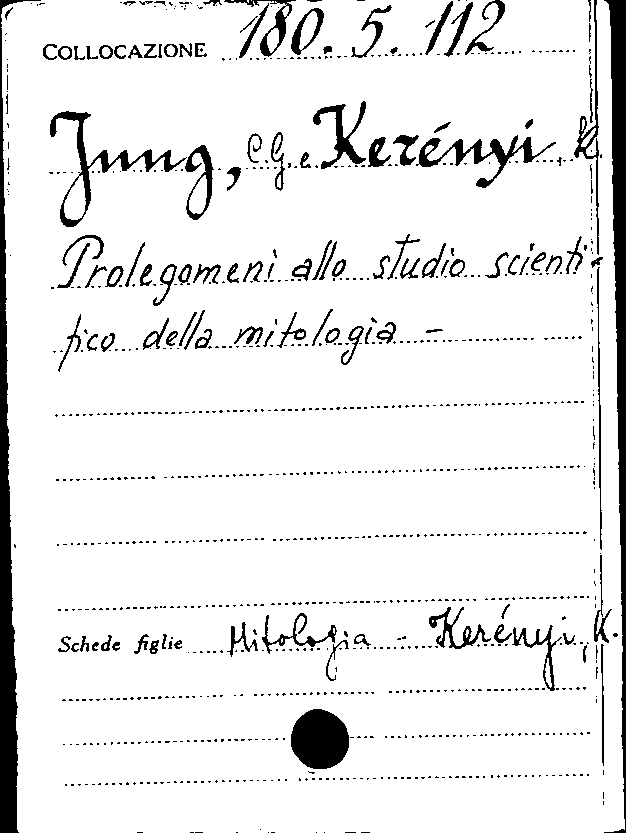 COLLOCAZIONE 180. 5. 112
Jung, C.G. e Kerényi, K
Prolegomeni allo studio scienti-
fico della mitologia -
Schede figlie Mitologia - Kerényi, K.